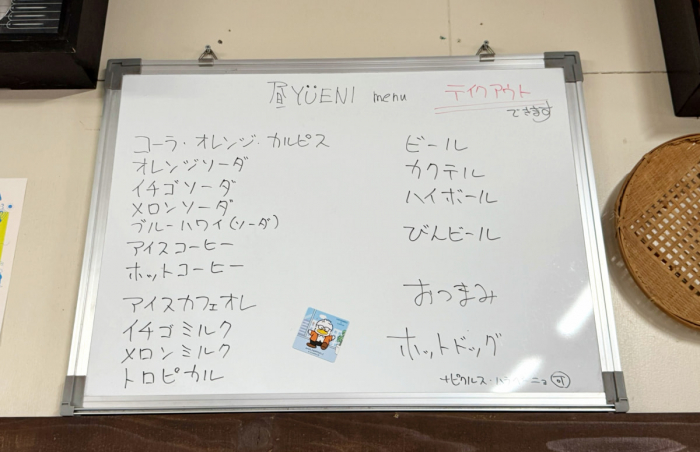 昼YÜENI menu
テイクアウト
できます
コーラ・オレンジ・カルピス
オレンジソーダ
イチゴソーダ
メロンソーダ
ブルーハワイ(ソーダ)
アイスコーヒー
ホットコーヒー
アイスカフェオレ
イチゴミルク
メロンミルク
トロピカル
ビール
カクテル
ハイボール
びんビール
おつまみ
ホットドッグ
+ピクルス・ハラペーニョ 可